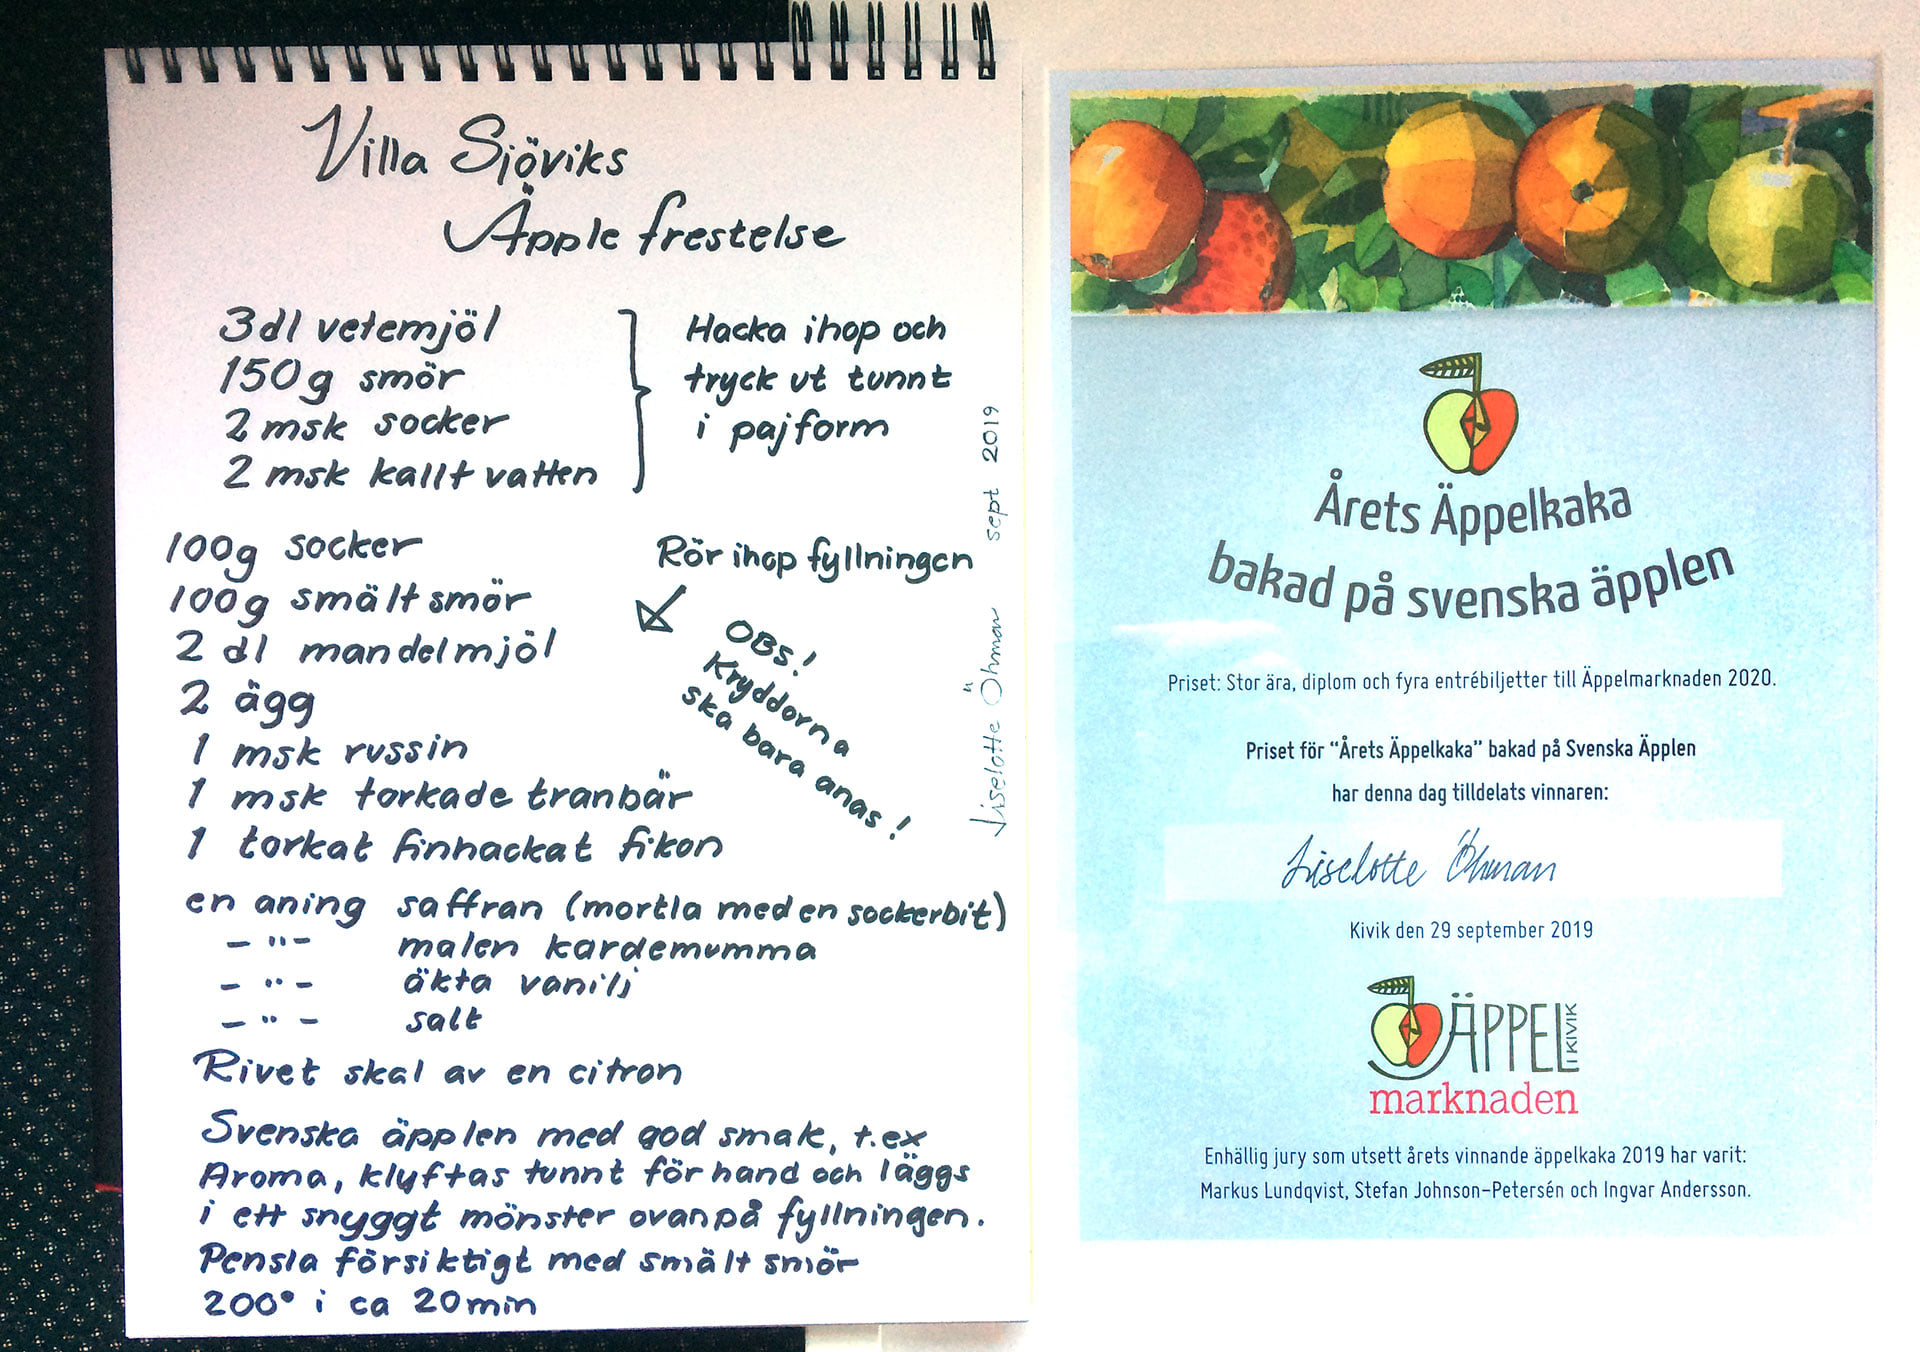 Villa Sjöviks
Äpple frestelse
3 dl vetemjöl
150 g smör
2 msk socker
2 msk kallt vatten
Hacka ihop och
tryck ut tunnt
i pajform
100g socker
100g smält smör
2 dl mandelmjöl
2 ägg
1 msk russin
1 msk torkade tranbär
1 torkat finhackat fikon
Rör ihop fyllningen
OBS!
Kryddorna
ska bara anas!
en aning saffran (mortla med en sockerbit)
- " - malen kardemumma
- " - äkta vanilj
- " - salt
Rivet skal av en citron
Svenska äpplen med god smak, t.ex
Aroma, klyftas tunnt för hand och läggs
i ett snyggt mönster ovanpå fyllningen.
Pensla försiktigt med smält smör
200° i ca 20 min
Liselotte Öhman sept 2019
Årets Äppelkaka
bakad på svenska äpplen
Priset: Stor ära, diplom och fyra entrébiljetter till Äppelmarknaden 2020.
Priset för “Årets Äppelkaka” bakad på Svenska Äpplen
har denna dag tilldelats vinnaren:
Liselotte Öhman
Kivik den 29 september 2019
ÄPPEL
I KIVIK
marknaden
Enhällig jury som utsett årets vinnande äppelkaka 2019 har varit:
Markus Lundqvist, Stefan Johnson-Petersén och Ingvar Andersson.